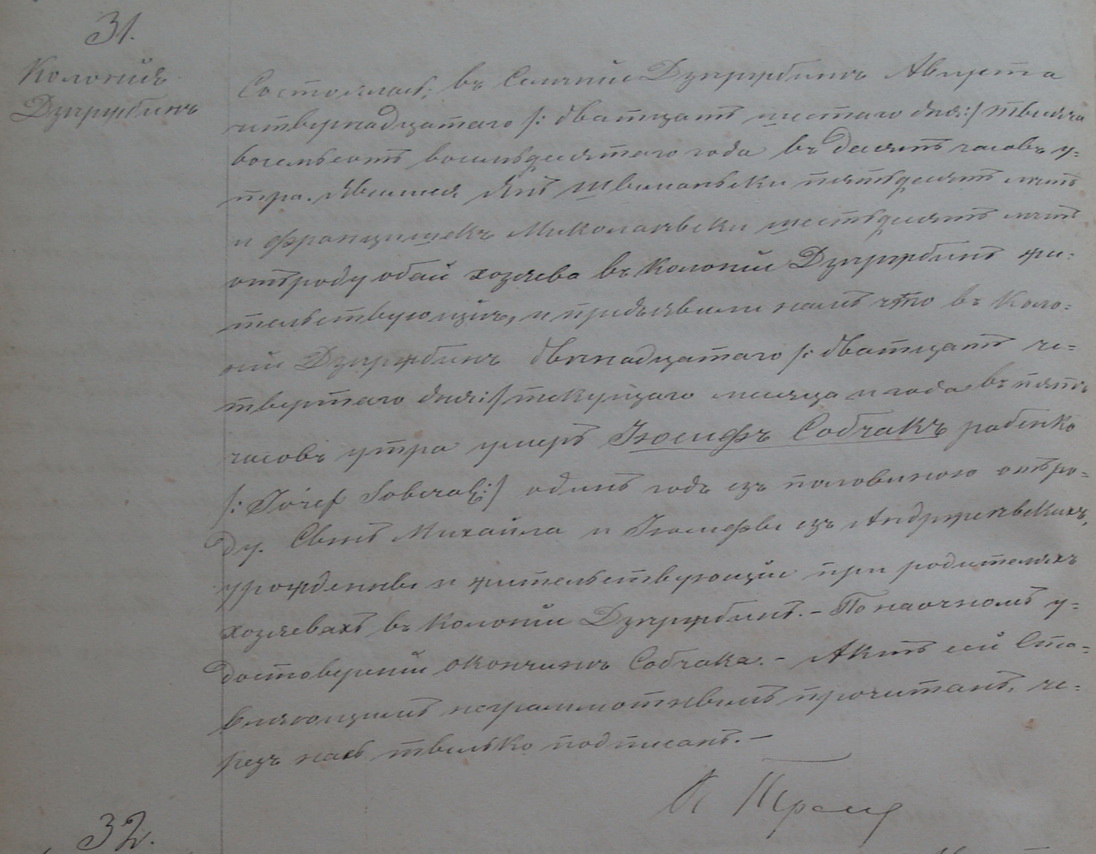 31.
Колонія
Дзержбинъ
Состоялось въ Селеніи Дзержбинъ Августа
четвернадцатаго /: двадцать шестаго дня:/ тысяча
восемьсотъ восемьдесятаго года въ десять часовъ у=
тра. Явились Янъ пятьдесятъ лѣтъ
и Францишекъ Миколаевски шестьдесятъ лѣтъ
отъ роду обай хозяева въ Колоніи Дзержбинъ жи=
тельствующіи, и предъявили намъ что въ Коло=
ніи Дзержбинъ двенадцатаго /: двадцать че=
твертаго дня:/ текущаго месяца и года въ пять
часовъ утра умеръ Іосифъ Собчакъ ребенко
/: Józef Sobczak:/ одинъ годъ съ половиною отъ ро=
ду. Сынъ Михаила и Іосифы изъ Андржеевскихъ,
урожденны и жительствующій при родителяхъ
хозяевахъ въ Колоніи Дзержбинъ. – По наочномъ у=
достовереніи о кончинѣ Собчака. – Актъ сей Ста=
вляющимъ неграмотнымъ прочитанъ, че=
резъ насъ только подписанъ. –
32.